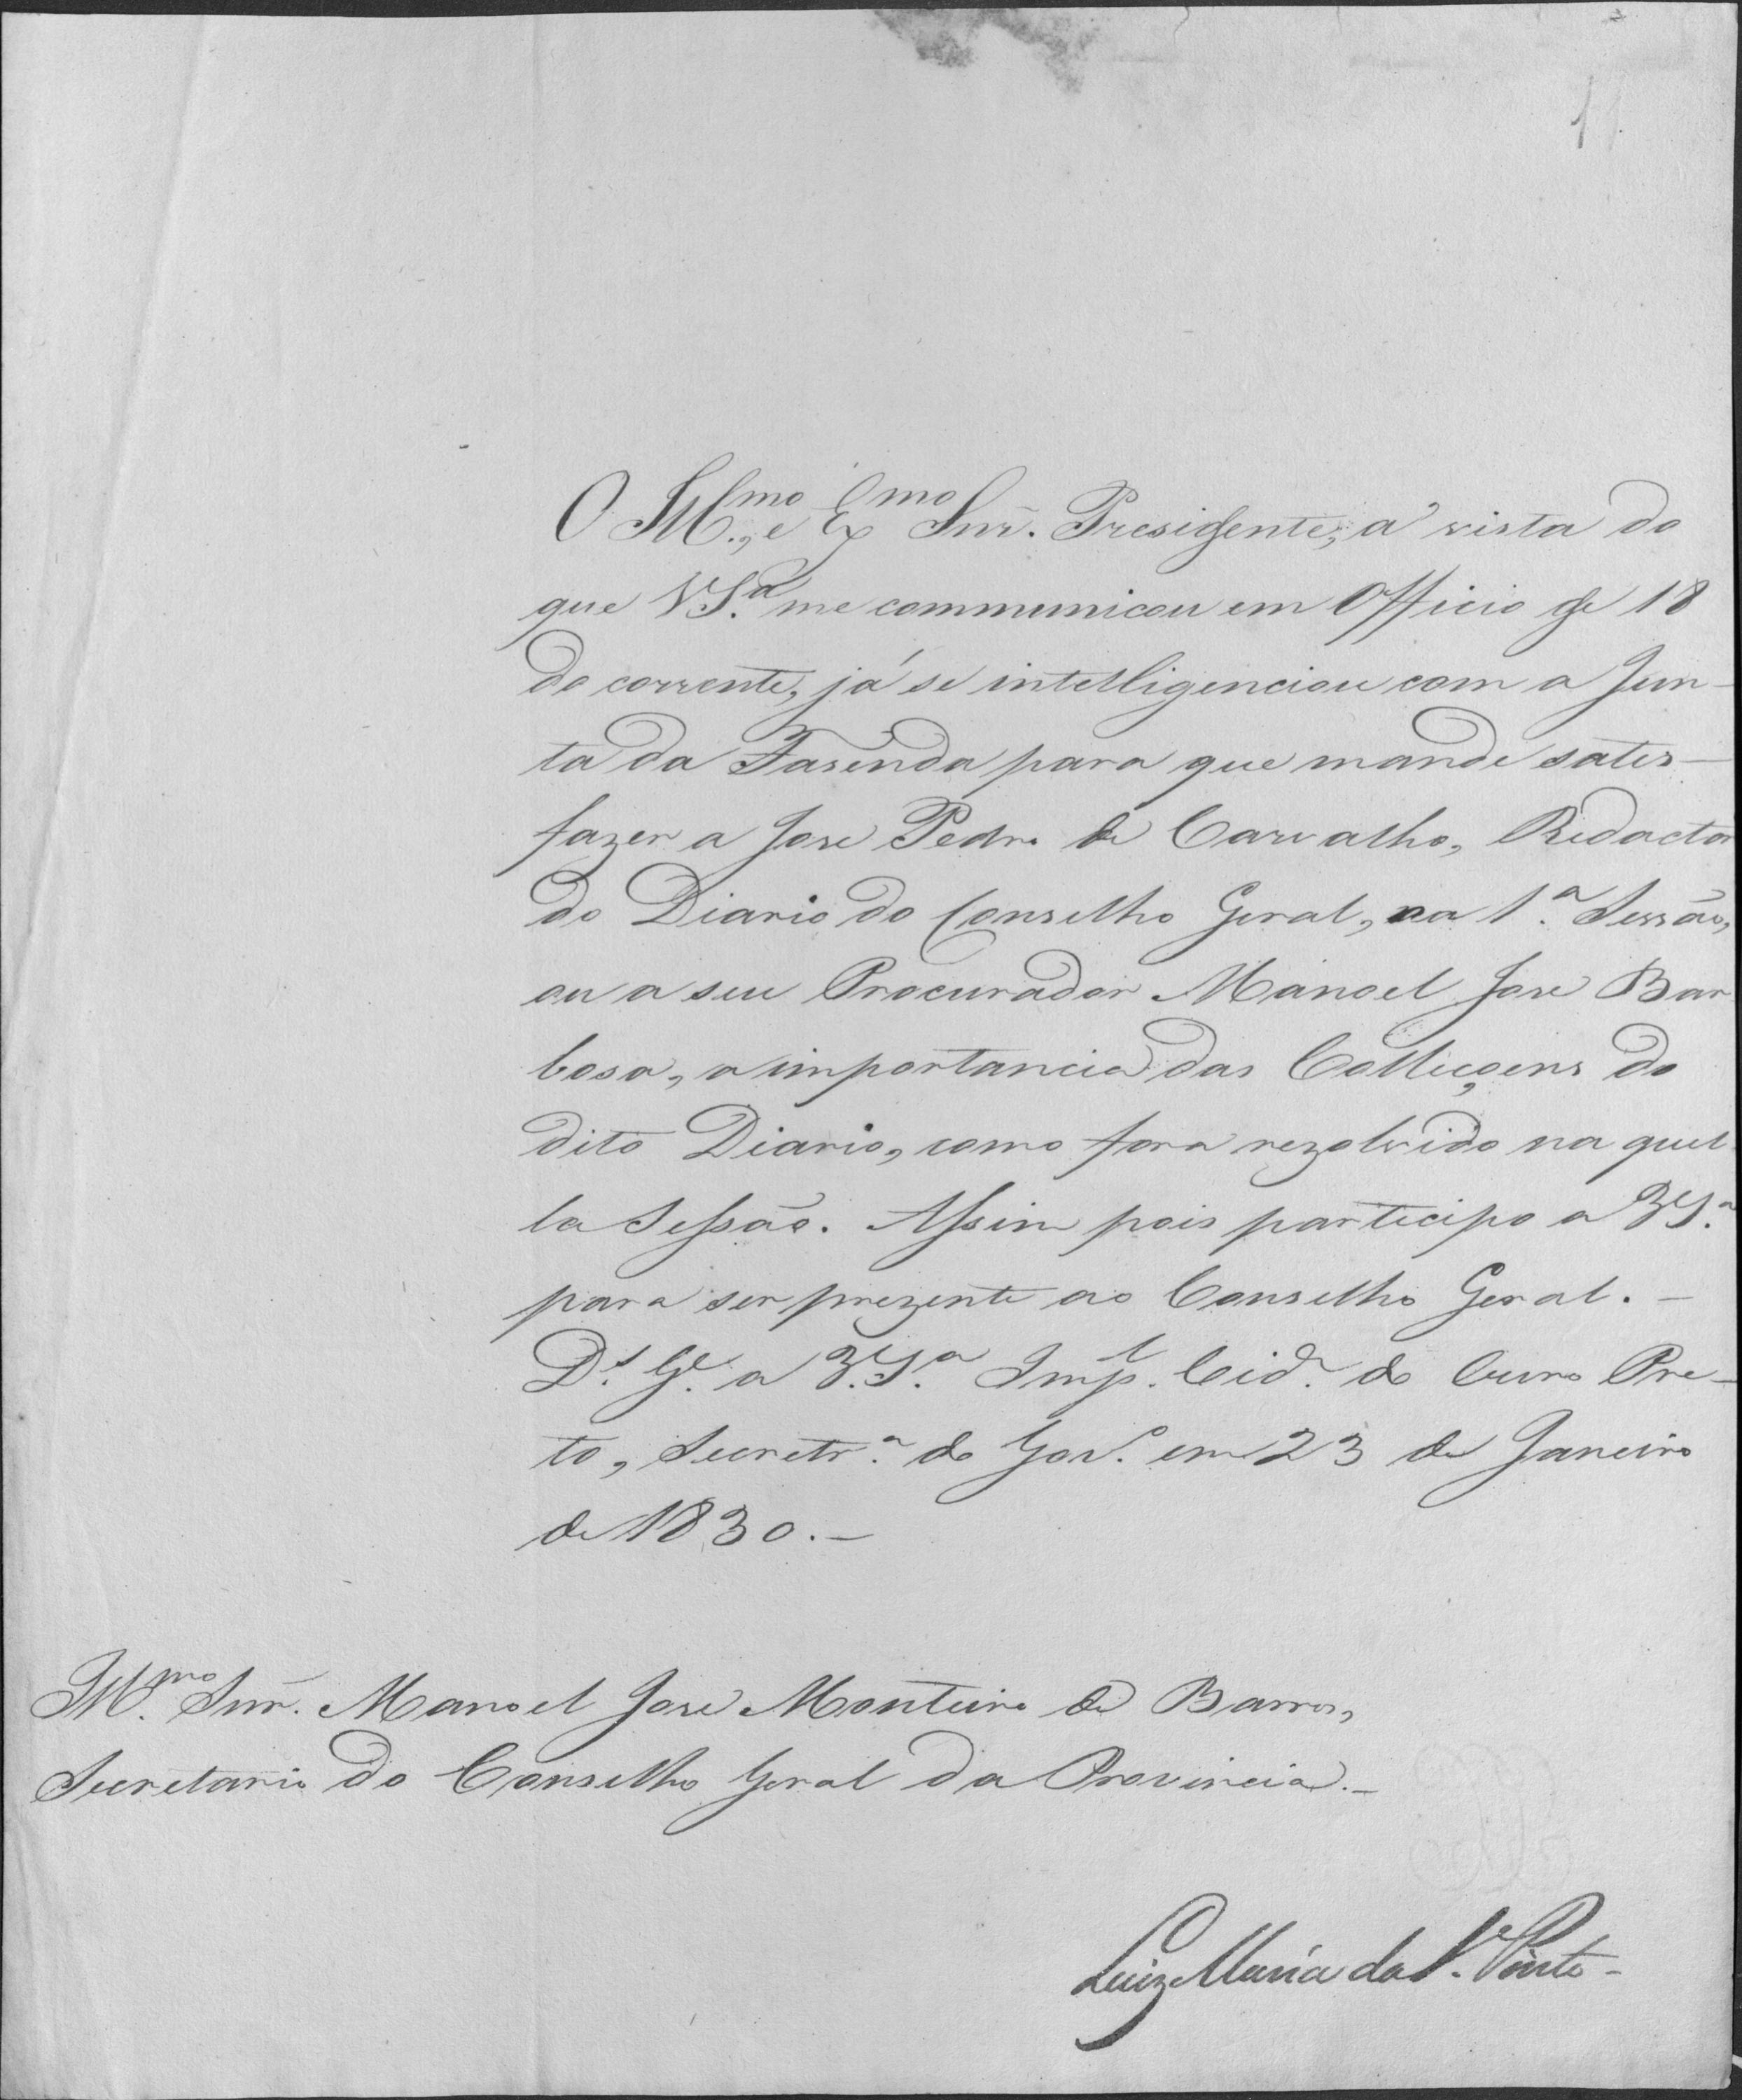 11
O Ill.mo, e Ex.mo Snr. Presidente, á vista do
que V S.ª me communicou em Officio de 18
do corrente, já se intelligenciou com a Jun-
ta da Fasenda para que mande satis-
fazer a Jose Pedro de Carvalho, Redactor
do Diario do Conselho Geral, na 1.ª Sessão,
ou a seu Procurador Manoel Jose Bar
bosa, a importancia das Colleçoens do
dito Diario, como fora rezolvido na quel
la Sessão. Assim pois participo a V S.ª
para ser prezente ao Conselho Geral. -
D.s G.e a V. S.ª Imp.l Cid.e do Ouro Pre-
to, Secretr.ª do Gov.º em 23 de Janeiro
de 1830. -
Ill.mo Snr. Manoel Jose Monteiro de Barros,
Secretario do Conselho Geral da Provincia. -
Luiz Maria da S.ª Pinto -